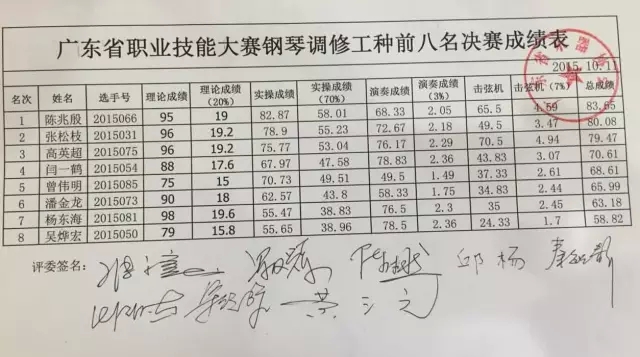 广东省职业技能大赛钢琴调修工种前八名决赛成绩表
2015.10.11
名次 姓名 选手号 理论成绩 理论成绩(20%) 实操成绩 实操成绩(70%) 演奏成绩 演奏成绩(3%) 击弦机 击弦机(7%) 总成绩
1 陈兆殷 2015066 95 19 82.87 58.01 68.33 2.05 65.5 4.59 83.65
2 张松枝 2015031 96 19.2 78.9 55.23 72.67 2.18 49.5 3.47 80.08
3 高英超 2015075 96 19.2 75.77 53.04 76.17 2.29 70.5 4.94 79.47
4 闫一鹤 2015054 88 17.6 67.97 47.58 78.83 2.36 43.83 3.07 70.61
5 曾伟明 2015085 75 15 70.73 49.51 49.5 1.49 37.33 2.61 68.61
6 潘金龙 2015073 90 18 62.57 43.8 58.33 1.75 34.83 2.44 65.99
7 杨东海 2015081 98 19.6 55.47 38.83 76.5 2.3 35 2.45 63.18
8 吴烨宏 2015050 79 15.8 55.65 38.96 78.5 2.36 24.33 1.7 58.82
评委签名： 邱杨